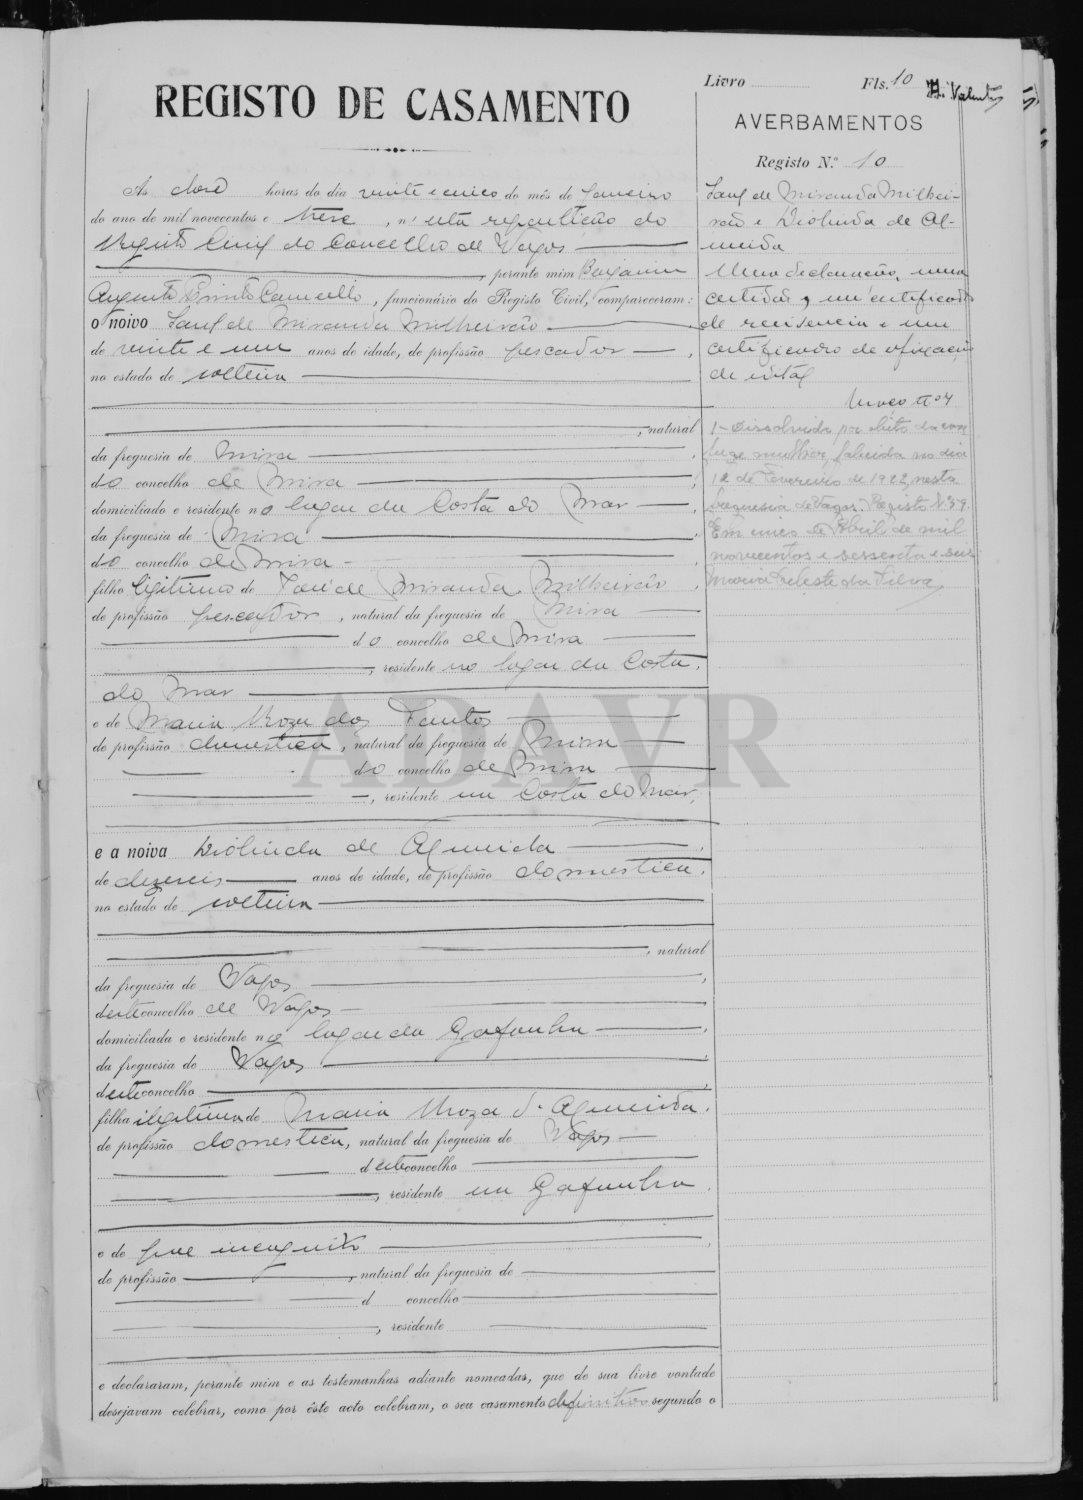 Livro Fls. 10
REGISTO DE CASAMENTO
AVERBAMENTOS
Registo N.º 10
Às doze horas do dia vinte e cinco do mês de Janeiro
do ano de mil novecentos e treze, n'esta repartição do
Registo Civil do Concelho de Vagos
, perante mim Benjamim
Augusto Camello, funcionário do Registo Civil, compareceram:
o noivo de Miranda Milheirão
de vinte e um anos de idade, de profissão pescador,
no estado de solteiro
, natural
da freguesia de Mira,
do concelho de Mira,
domiciliado e residente no lugar da Costa do Mar,
da freguesia de Mira,
do concelho de Mira
filho legitimo de José de Miranda Milheirão,
de profissão pescador, natural da freguesia de Mira
do concelho de Mira
, residente no lugar da Costa
do Mar
e de Maria Roza dos Santos
de profissão domestica, natural da freguesia de Mira
do concelho de Mira
, residente na Costa do Mar,
e a noiva Diolinda de Almeida,
de dezeseis anos de idade, de profissão domestica,
no estado de solteira
, natural
da freguesia de Vagos,
deste concelho de Vagos
domiciliada e residente no lugar da Gafanha,
da freguesia de Vagos,
deste concelho
filha ilegitima de Maria Roza d'Almeida,
de profissão domestica, natural da freguesia de Vagos
deste concelho
, residente na Gafanha.
e de pae incognito,
de profissão , natural da freguesia de
d concelho
, residente
e declararam, perante mim e as testemunhas adiante nomeadas, que de sua livre vontade
desejavam celebrar, como por êste acto celebram, o seu casamento definitivo segundo o
de Miranda Milhei-
rão e Diolinda de Al-
meida
Uma declaração, uma
certidão, um certificado
de residencia e um
certificado de afixação
de edital
Maço nº 4
1- Dissolvido por óbito da con
juge mulher, falecida no dia
12 de Fevereiro de 1922, nesta
freguesia de Vagos. Registo N.39.
Em cinco de Abril de mil
novecentos e sessenta e seis
Maria Celeste da Silva
ADAVR